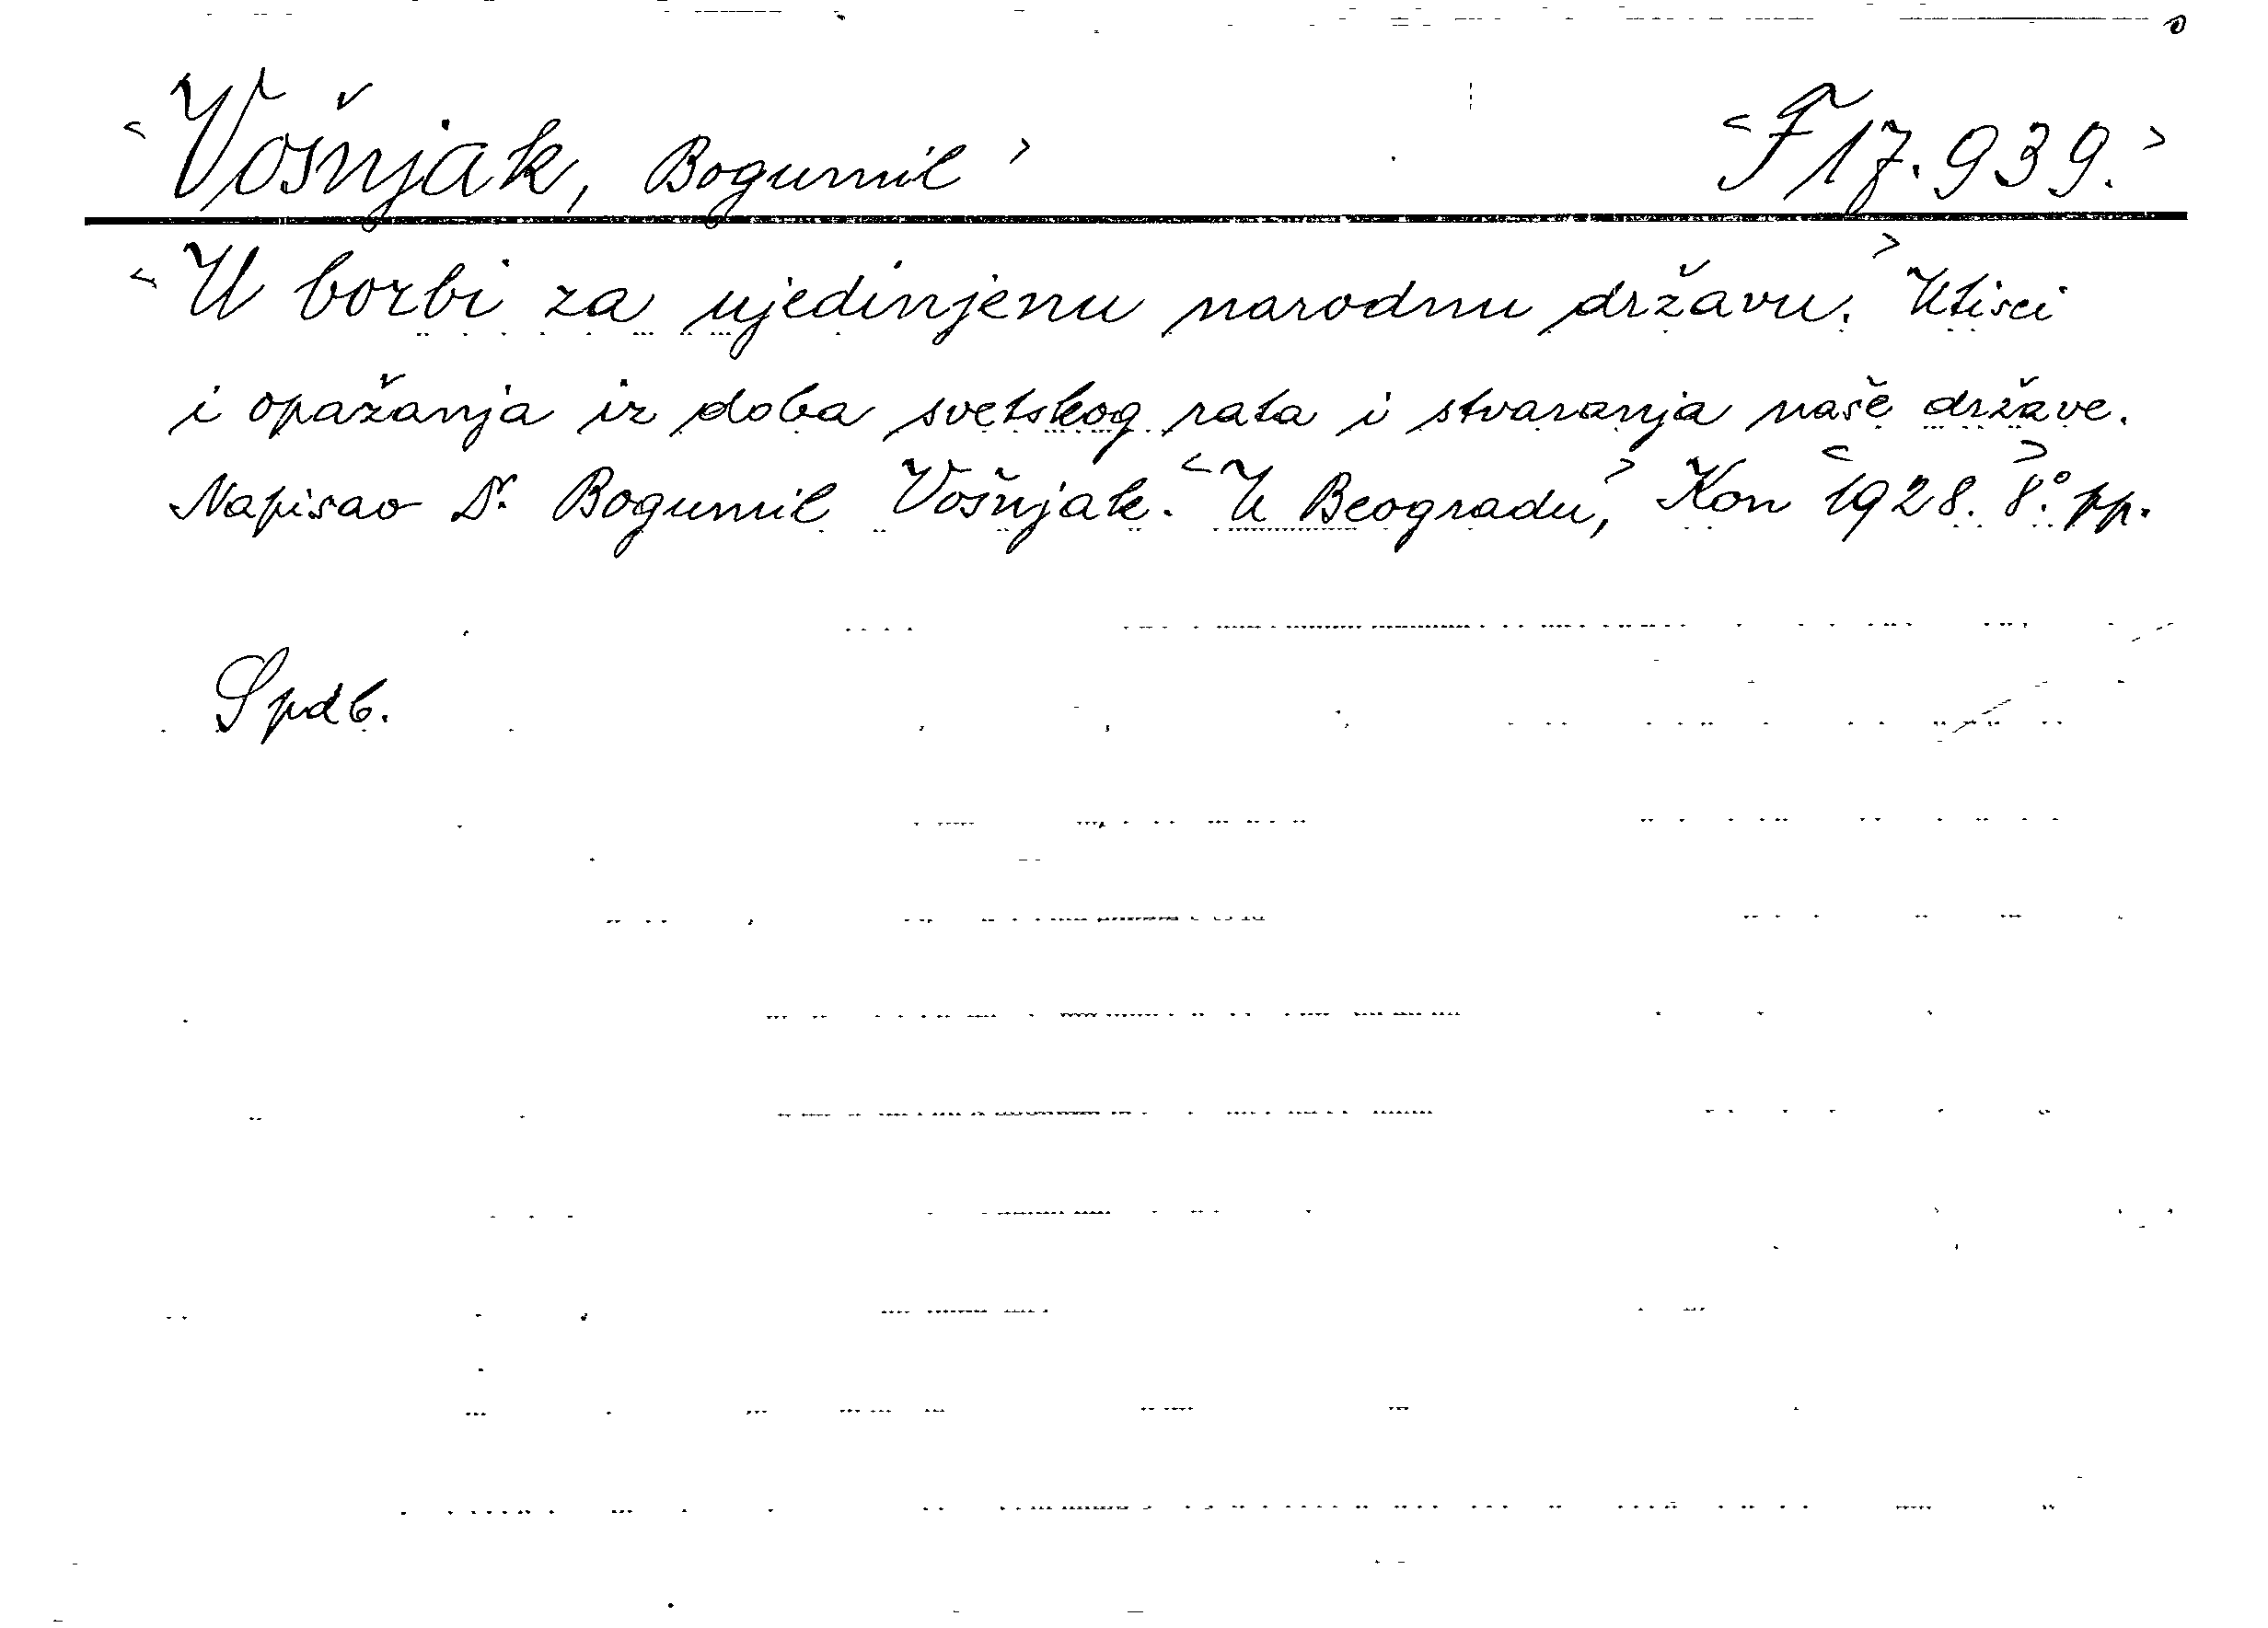 <Vošnjak, Bogumil> <F 17.939.>
<U borbi za ujedinjenu narodnu državu.> Utisci
i opažanja iz doba svetskog rata i stvaranja naše države.
Napisao Dr. Bogumil Vošnjak. <U Beogradu,> Kon <1928. 8°.> pp.
Spdb.